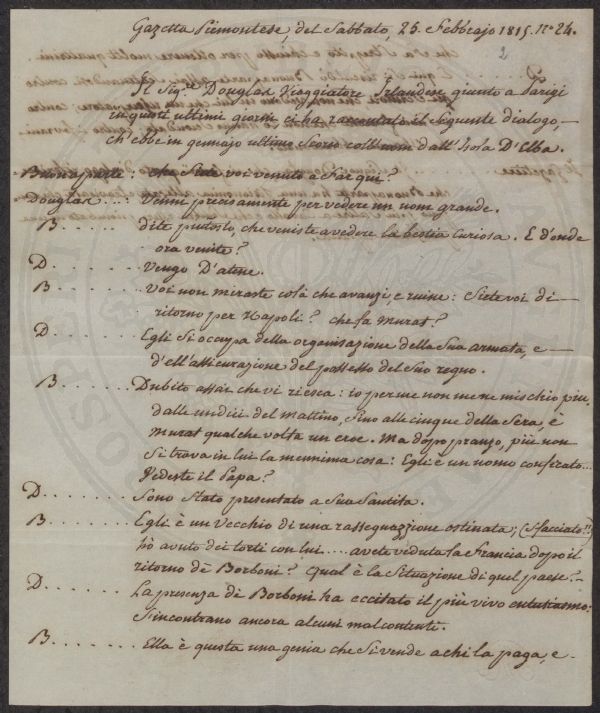 Gazetta Piemontese, del Sabbato, 25. Febbrajo 1815. N.º 24.
2
Il Sig.re Douglas Viaggiatore Irlandese giunto a Parigi
in questi ultimi giorni ci ha raccontato il seguente dialogo,
ch'ebbe in gennajo ultimo scorso coll'uom dall'Isola D'Elba.
Buonaparte: che siete voi venuto a far qui?
Douglas...: Venni precisamente per vedere un uom grande.
B..... dite piutosto, che veniste a vedere la bestia curiosa. E d'onde
ora venite?
D....... Vengo D'atene.
B...... Voi non miraste colà che avanzi, e ruine: Siete voi di
ritorno per Napoli? che fa Murat?
D....... Egli si occupa della organisazione della sua armata, e
d'ell'assicurazione del possesso del suo regno.
B...... Dubito assai che vi riesca: io per me non me ne mischio più,
dalle undici del mattino, sino alle cinque della sera, è
Murat qualche volta un eroe. Ma dopo pranzo, più non
si trova in lui la mennima cosa: Egli è un uomo
Vedeste il Papa?
D....... Sono stato presentato a Sua Santita.
B....... Egli è un Vecchio di una rassegnazzione ostinata; (Sfacciato!!)
hò avuto dei torti con lui.... avete veduta la Francia dopo il
ritorno dè Borboni? Qual è la situazione di quel paese?-
D....... La presenza dè Borboni ha eccitato il più vivo entusiasmo:
S'incontrano ancora alcuni malcontenti.
B....... Ella è questa una genia che si vende a chi la paga, e-